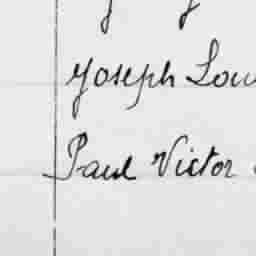 Joseph Lou
Paul Victor